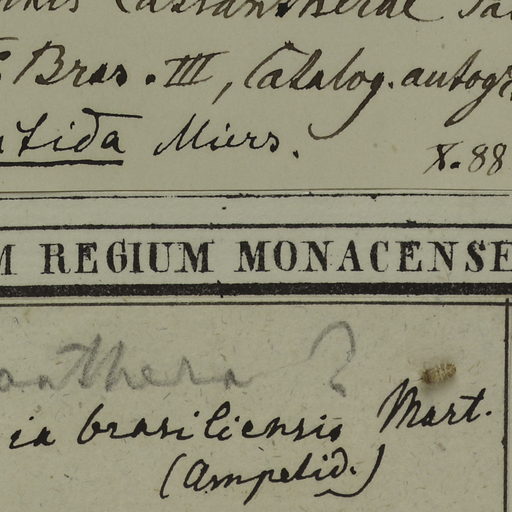 Bras. III, Catalog. autogr
Miers.
X. 88
M REGIUM MONACENSE
anthera ?
ia brasiliensis Mart.
(Ampelid.)